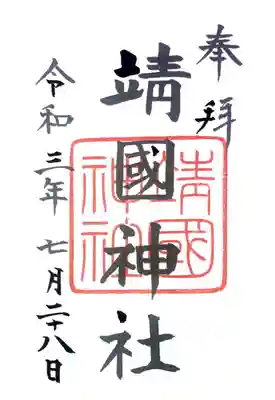 奉拝
靖國神社
靖國神社
令和三年七月二十八日